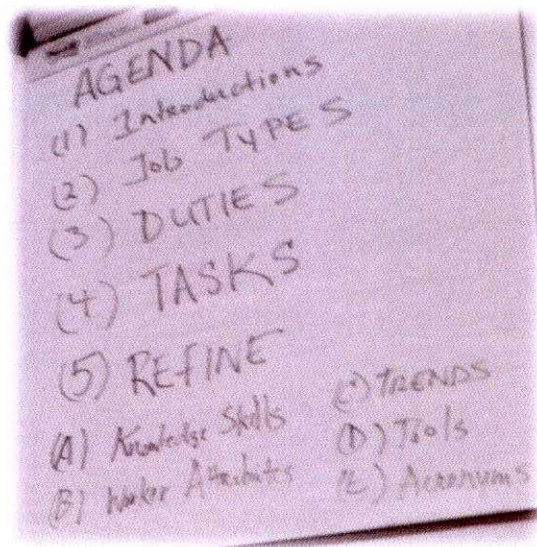 AGENDA
(1) Introductions
(2) Job TYPES
(3) DUTIES
(4) TASKS
(5) REFINE
(A) Knowledge Skills
(B) Worker Attributes
(C) TRENDS
(D) Tools
(E) Acronyms